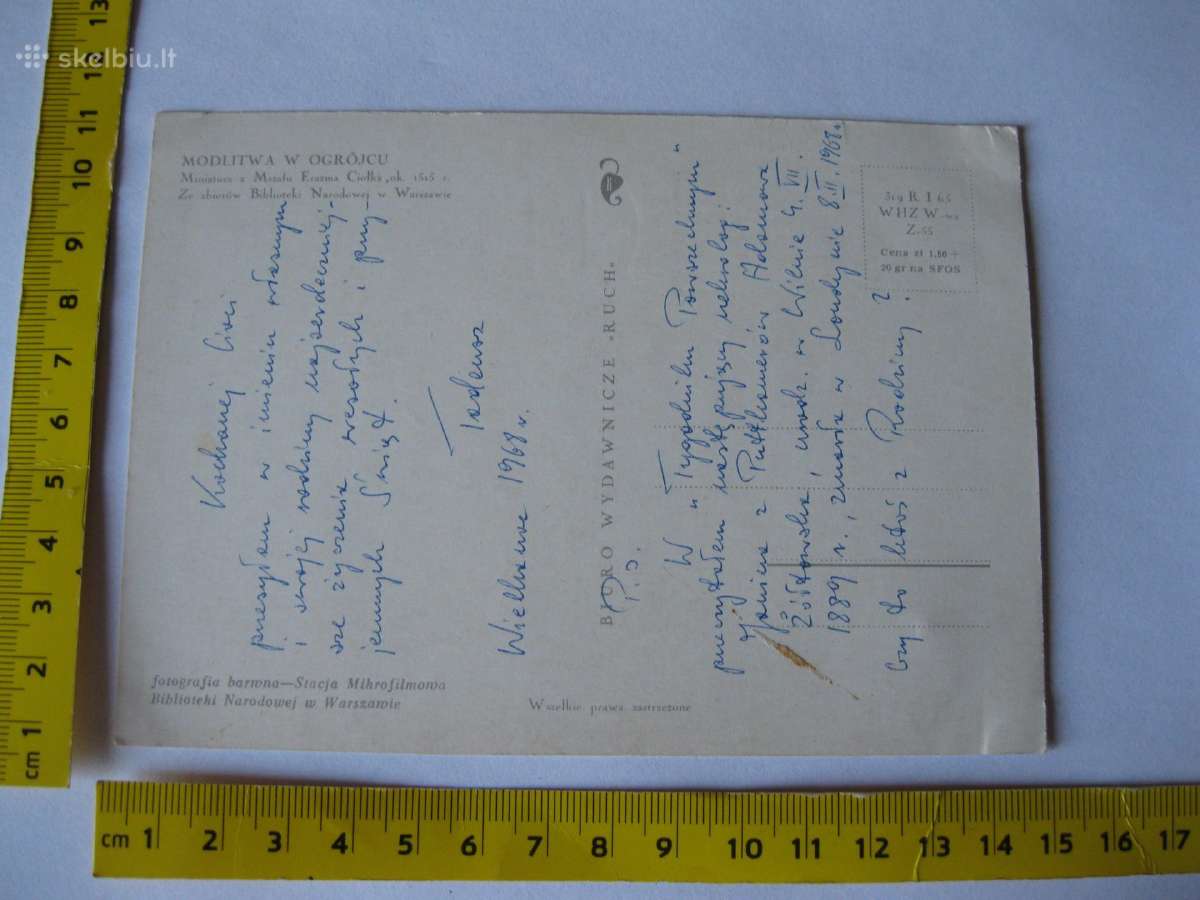 skelbiu.lt
MODLITWA W OGRÓJCU
Miniatura z Mszału Erazma Ciołka, ok. 1515 r.
Ze zbiorów Biblioteki Narodowej w Warszawie
Kochanej Cioci
przesyłam w imieniu własnym
i swojej rodziny najserdeczniej
sze życzenia wesołych i przy
jemnych Świąt.
Tadeusz
Wielkanoc 1968 r.
fotografia barwna—Stacja Mikrofilmowa
Biblioteki Narodowej w Warszawie
BIURO WYDAWNICZE »RUCH«
Wszelkie prawa zastrzeżone
P.S.
W „Tygodniku Powszechnym"
przeczytałem następujący nekrolog:
Janina z Puttkamerów Adamowa
Żółtowska, urodz. w Wilnie 4.VII.
1889 r., zmarła w Londynie 8.II.1968 r.
Czy to ktoś z Rodziny?
319 R. I 65
WHZ W-wa
Z. 55
Cena zł 1,50 +
20 gr na SFOS
cm 1 2 3 4 5 6 7 8 9 10 11 12 13
cm 1 2 3 4 5 6 7 8 9 10 11 12 13 14 15 16 17